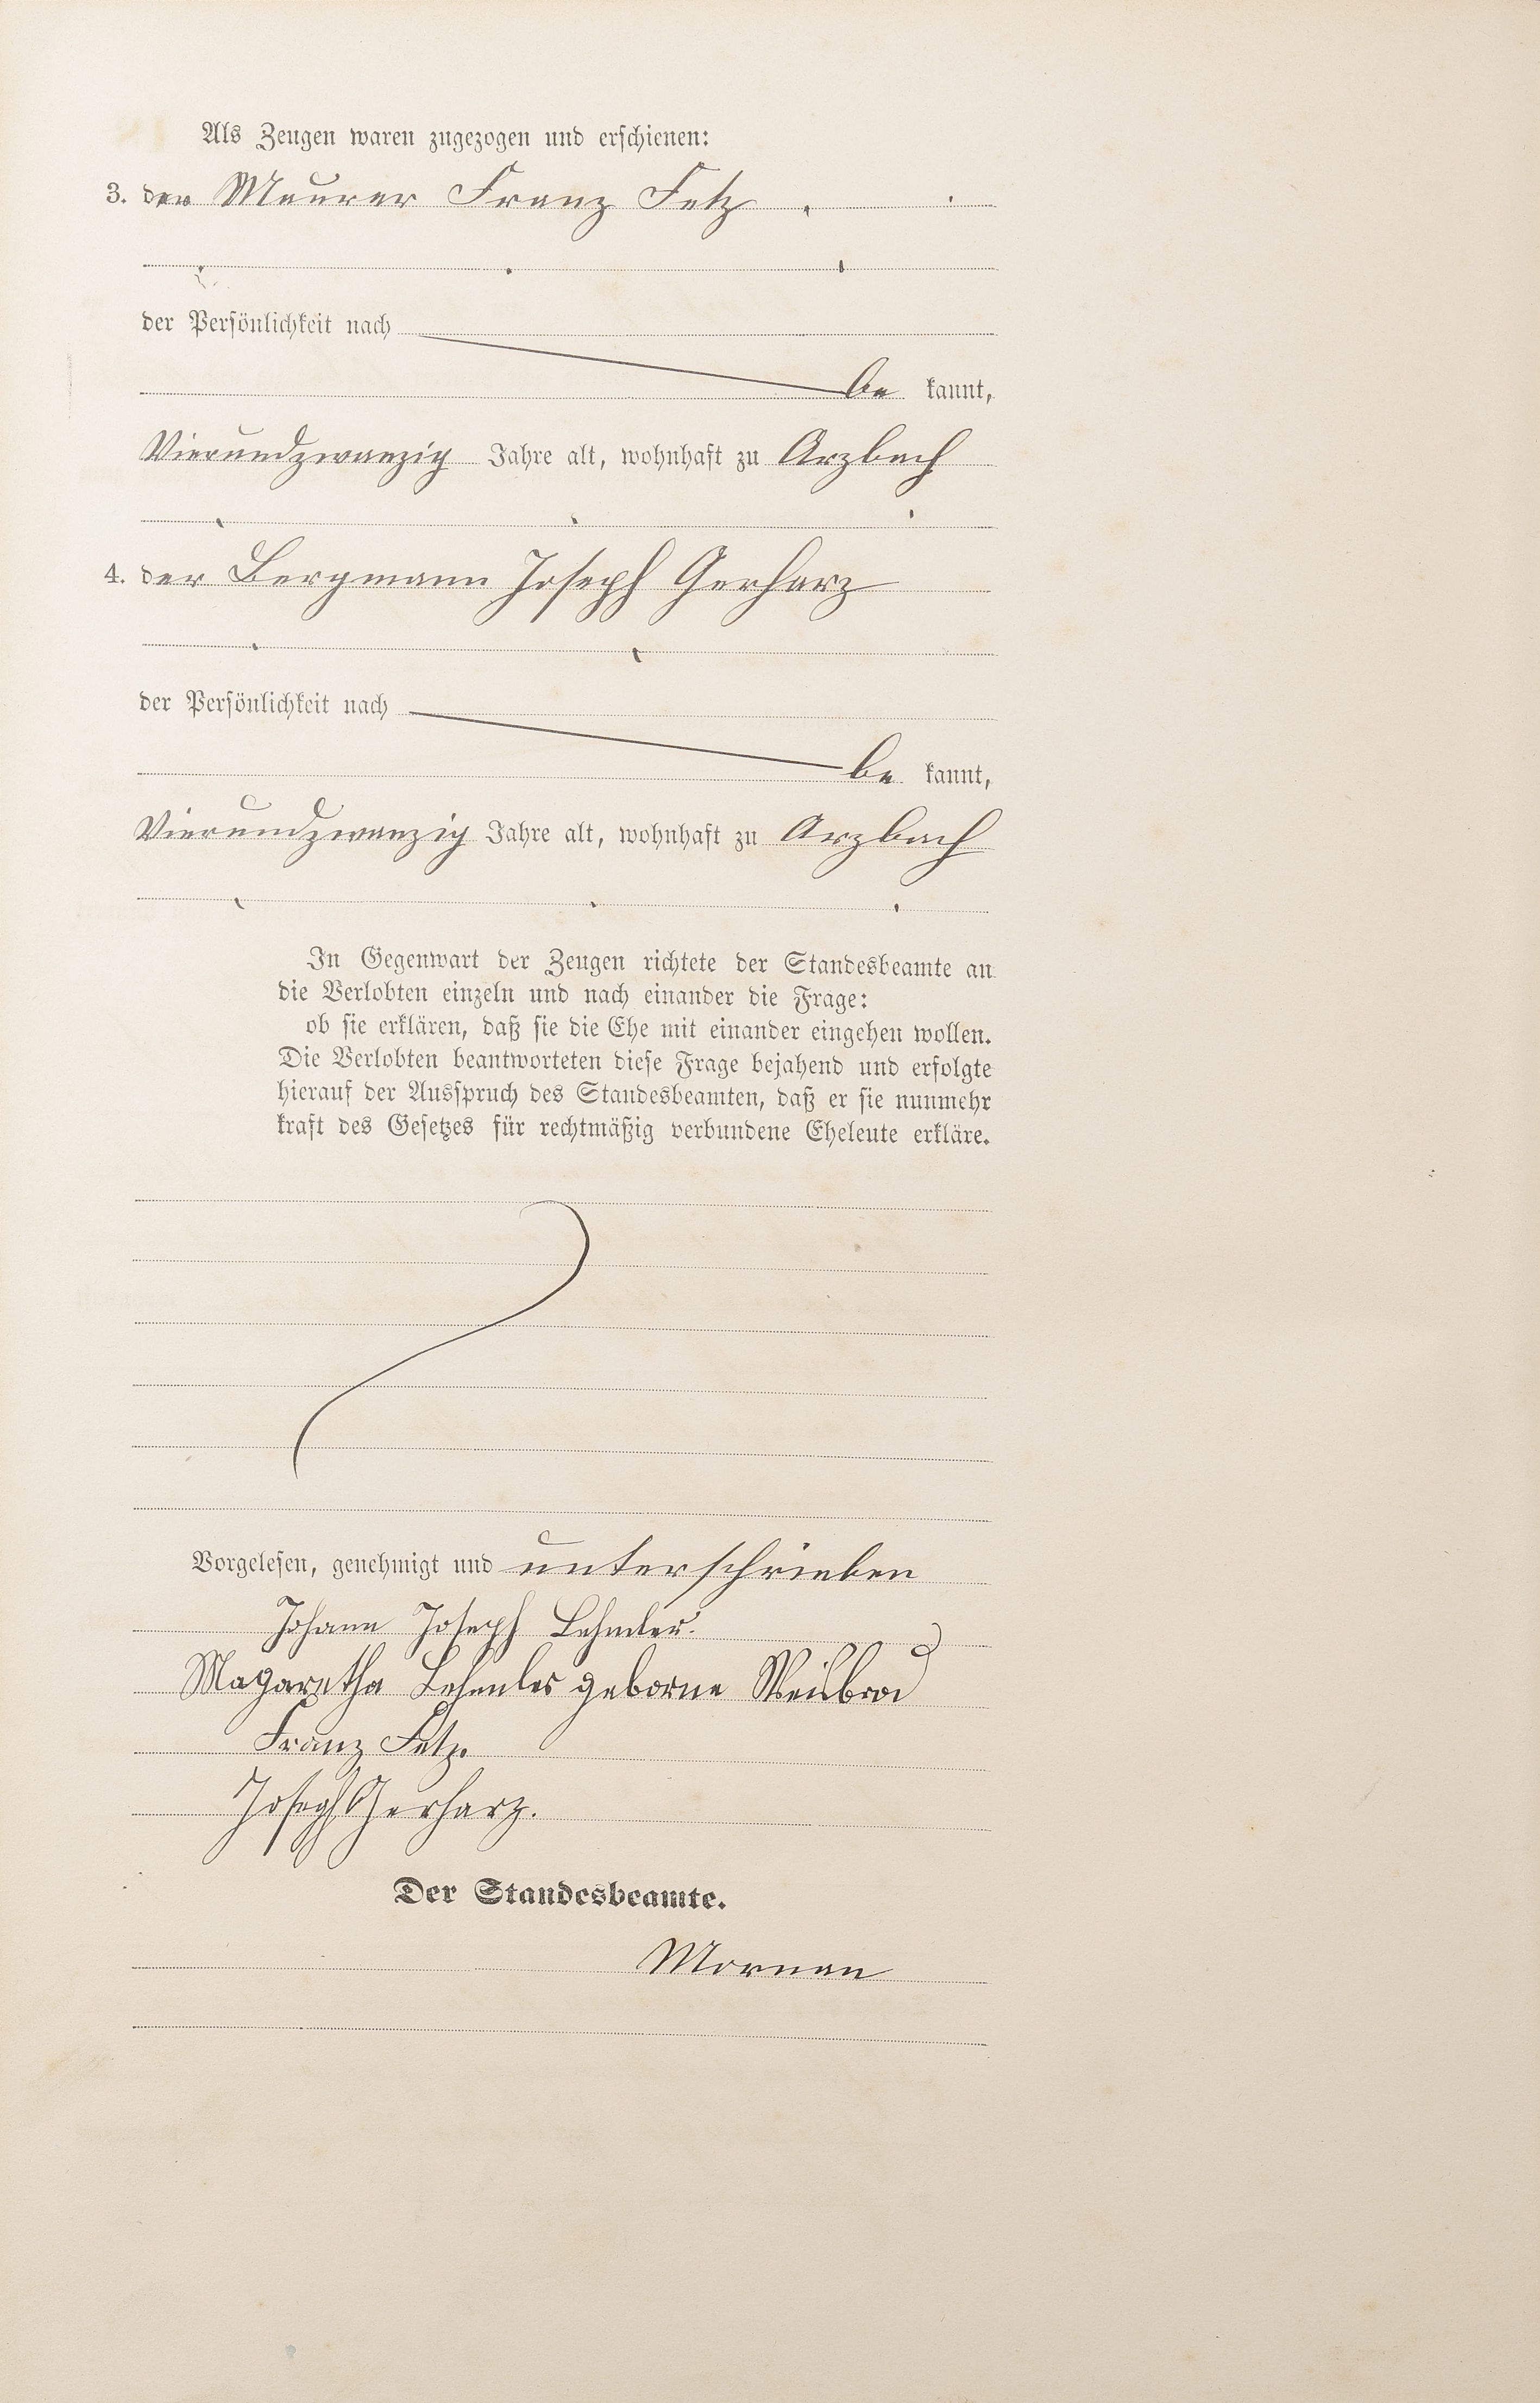 Als Zeugen waren zugezogen und erschienen:
3. der Maurer Franz Fetz
der Persönlichkeit nach
be kannt,
Vierundzwanzig Jahre alt, wohnhaft zu Arzbach
4. der Bergmann Joseph Gerharz
der Persönlichkeit nach
be kannt,
Vierundzwanzig Jahre alt, wohnhaft zu Arzbach
In Gegenwart der Zeugen richtete der Standesbeamte an
die Verlobten einzeln und nach einander die Frage:
ob sie erklären, daß sie die Ehe mit einander eingehen wollen.
Die Verlobten beantworteten diese Frage bejahend und erfolgte
hierauf der Ausspruch des Standesbeamten, daß er sie nunmehr
kraft des Gesetzes für rechtmäßig verbundene Eheleute erkläre.
Vorgelesen, genehmigt und unterschrieben
Johann Joseph Lehmler.
Magaretha Lehmler geborne Weisbrod
Franz Fetz.
Joseph Gerharz.
Der Standesbeamte.